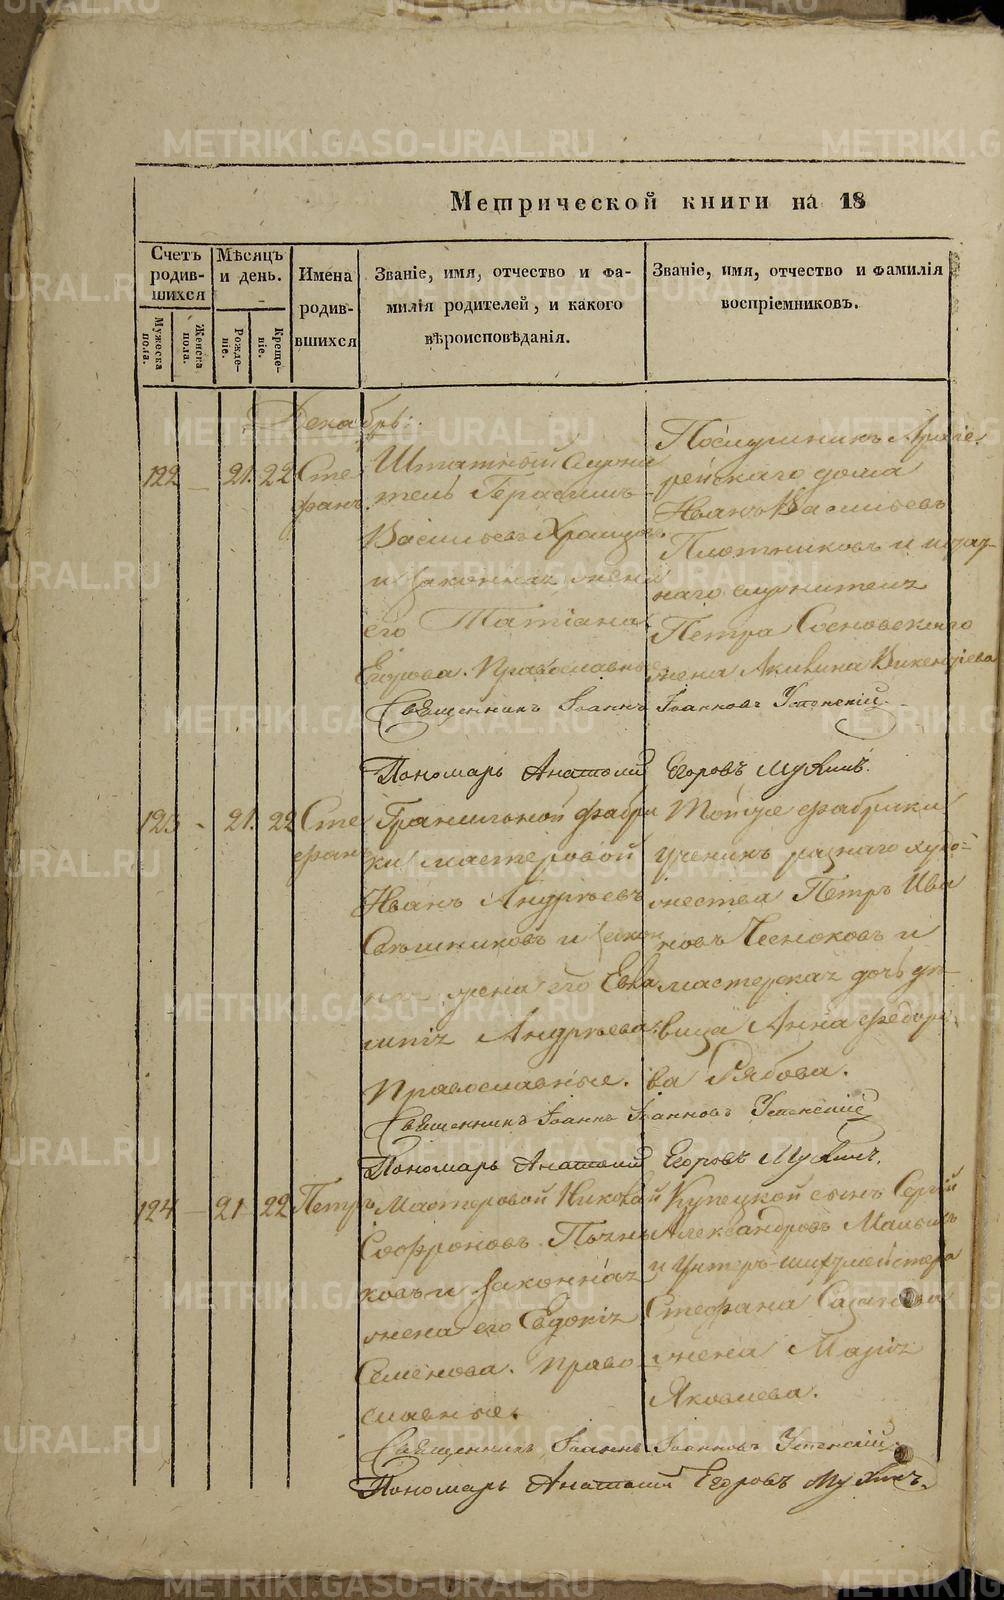 Метрической книги на 18
Счетъ родившихся
Мѣсяцъ и день.
Имена родившихся
Званіе, имя, отчество и фамилія родителей, и какого вѣроисповѣданія.
Званіе, имя, отчество и фамилія воспріемниковъ.
Мужеска пола.
Женска пола.
Рожденіе.
Крещеніе.
Декабрь.
122 21. 22 Стефанъ
Штатный служи
тель Герасимъ
Васильевъ
и законная жена
его Татіана
Егорова. Православные
Послушникъ Архіе
рейскаго дома
Иванъ Васильевъ
Плотниковъ и штат
наго служителя
Петра Сосновскаго
жена Акилина Викентіева
Священникъ Іоаннъ Іоанновъ Успенскій.
Пономарь Анатолій Егоровъ
123 21. 22 Стефанъ
Гранильной фабри
ки мастеровой
Иванъ Андреевъ
и закон
ная жена его Евла
мпія Андреева
Православные.
Тойже фабрики
ученикъ разнаго худо
жества Петръ Ива
новъ Чесноковъ и
мастерская дочь дѣ
вица Анна Федоро
ва Рябова.
Священникъ Іоаннъ Іоанновъ Успенскій
Пономарь Анатолій Егоровъ
124 21 22 Петръ
Мастеровой Николай
Софроновъ
ковъ и законная
жена его Евдокія
Семенова. Право
славные.
Купецкой сынъ Сергій
Александровъ
и Унтеръ-шихтмейстера
Стефана
жена Марія
Яковлева.
Священникъ Іоаннъ Іоанновъ Успенскій.
Пономарь Анатолій Егоровъ
METRIKI.GASO-URAL.RU